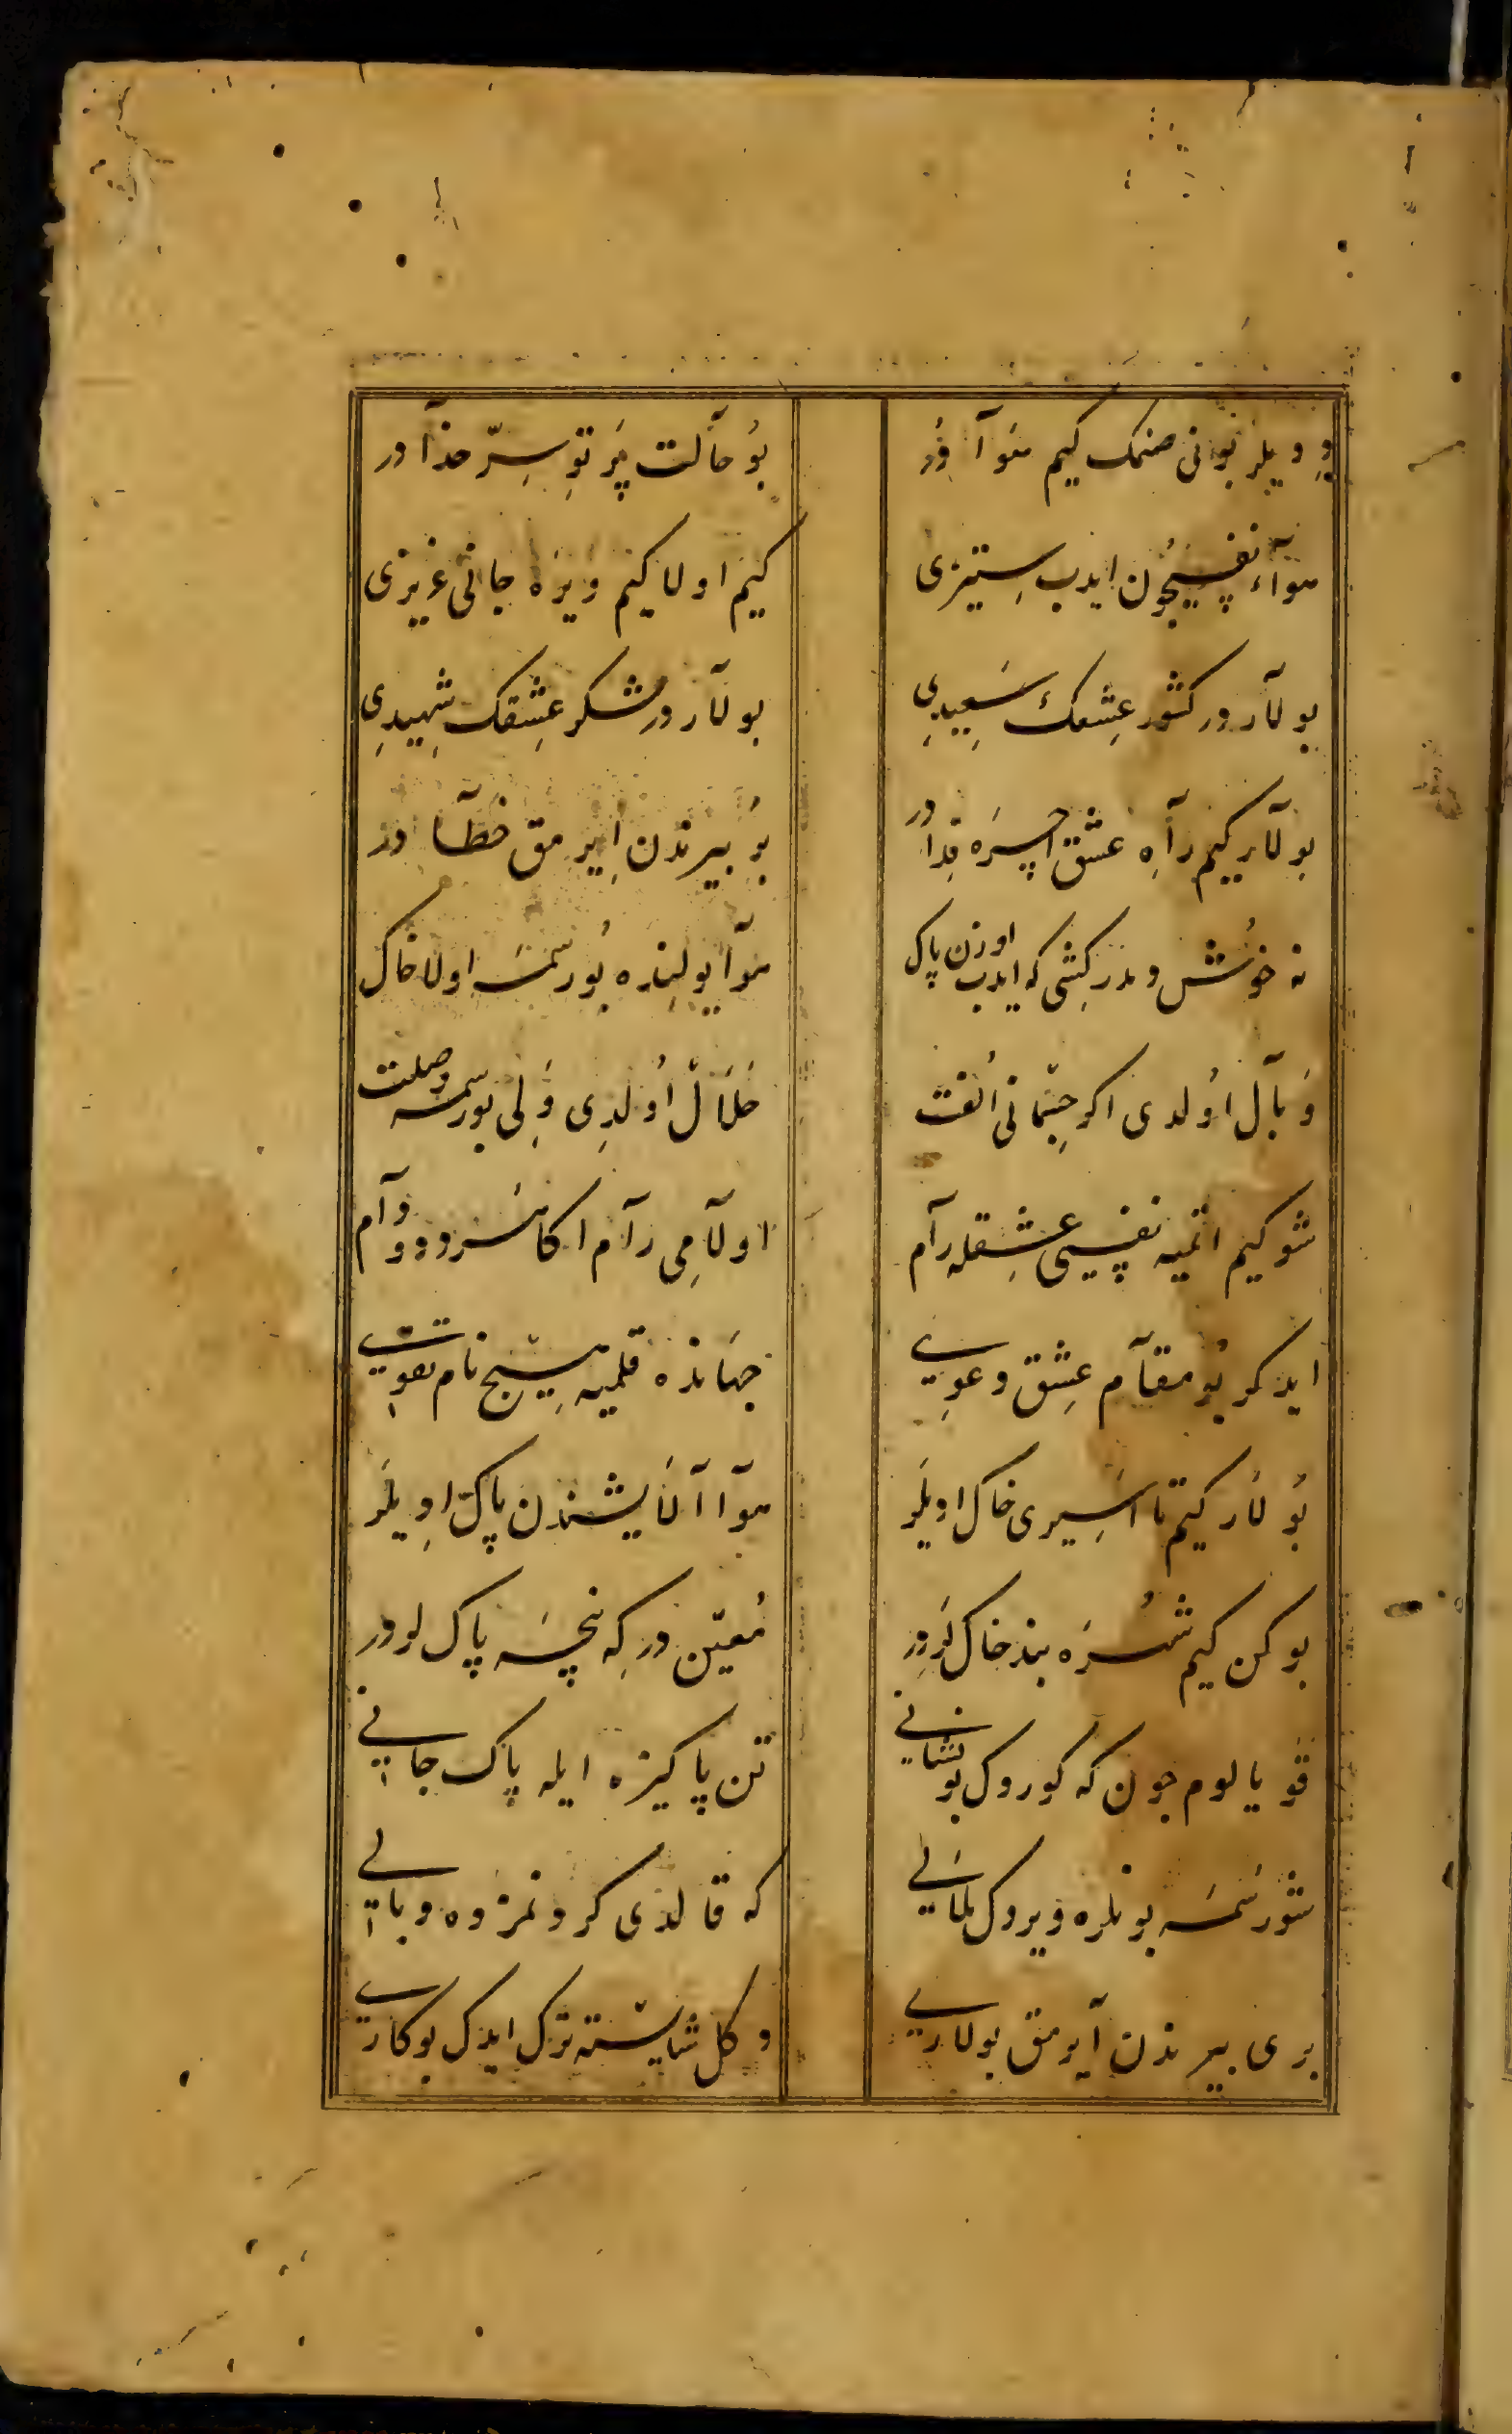 دِ دیلر بونی صنمک کیم هَوٰآ دُر
بُو حاٰلت پَرتوِ سِرّ خدآ در
هوآء نفسیچُون ایدب ستیزی
کیم اولا کیم ویره جانی عزیزی
بولآر در کشور عِشقک سَعِیدِی
بولآر در لشکر عِشقک شهِیدِی
بولآر کیم رآهِ عشق اچره فدا در
بُو بیرندن اِیرمق خطآ در
نه خوُش در کشی که ایدب اوزن پاک
هوآ یولنده بُو رسمه اولا خاک
وَبآل اُولدی اکر جِسمانی اُلفت
حَلَالْ اُولدِی وَلِی بو رسمه وصلت
شو کیم اتمیه نفسی عِشقله رآم
اولآمِی رآم اکا هر دد و دآم
ایدکر بُو مقآم عِشق دعوِی
جهَانده قلمیه هِیچ نام تقوِی
بُولَار کیم تا اَسِیری خاک اولیلر
هوآ آلَایشندن پاک اوِلیلر
بوکن کیم شهره بند خاک لَردِر
مُعیّن در کِه نیجَه پاک لر در
قویالوم چون که کوردک بو نشانی
تن پاکیزه ایله پاک جانی
شو رسَمه بونلره ویردک بلَایی
که قالدی کردنمزده وبالی
بری بیرندن آیرمق بولاری
دکل شایسته ترک ایدک بو کاری